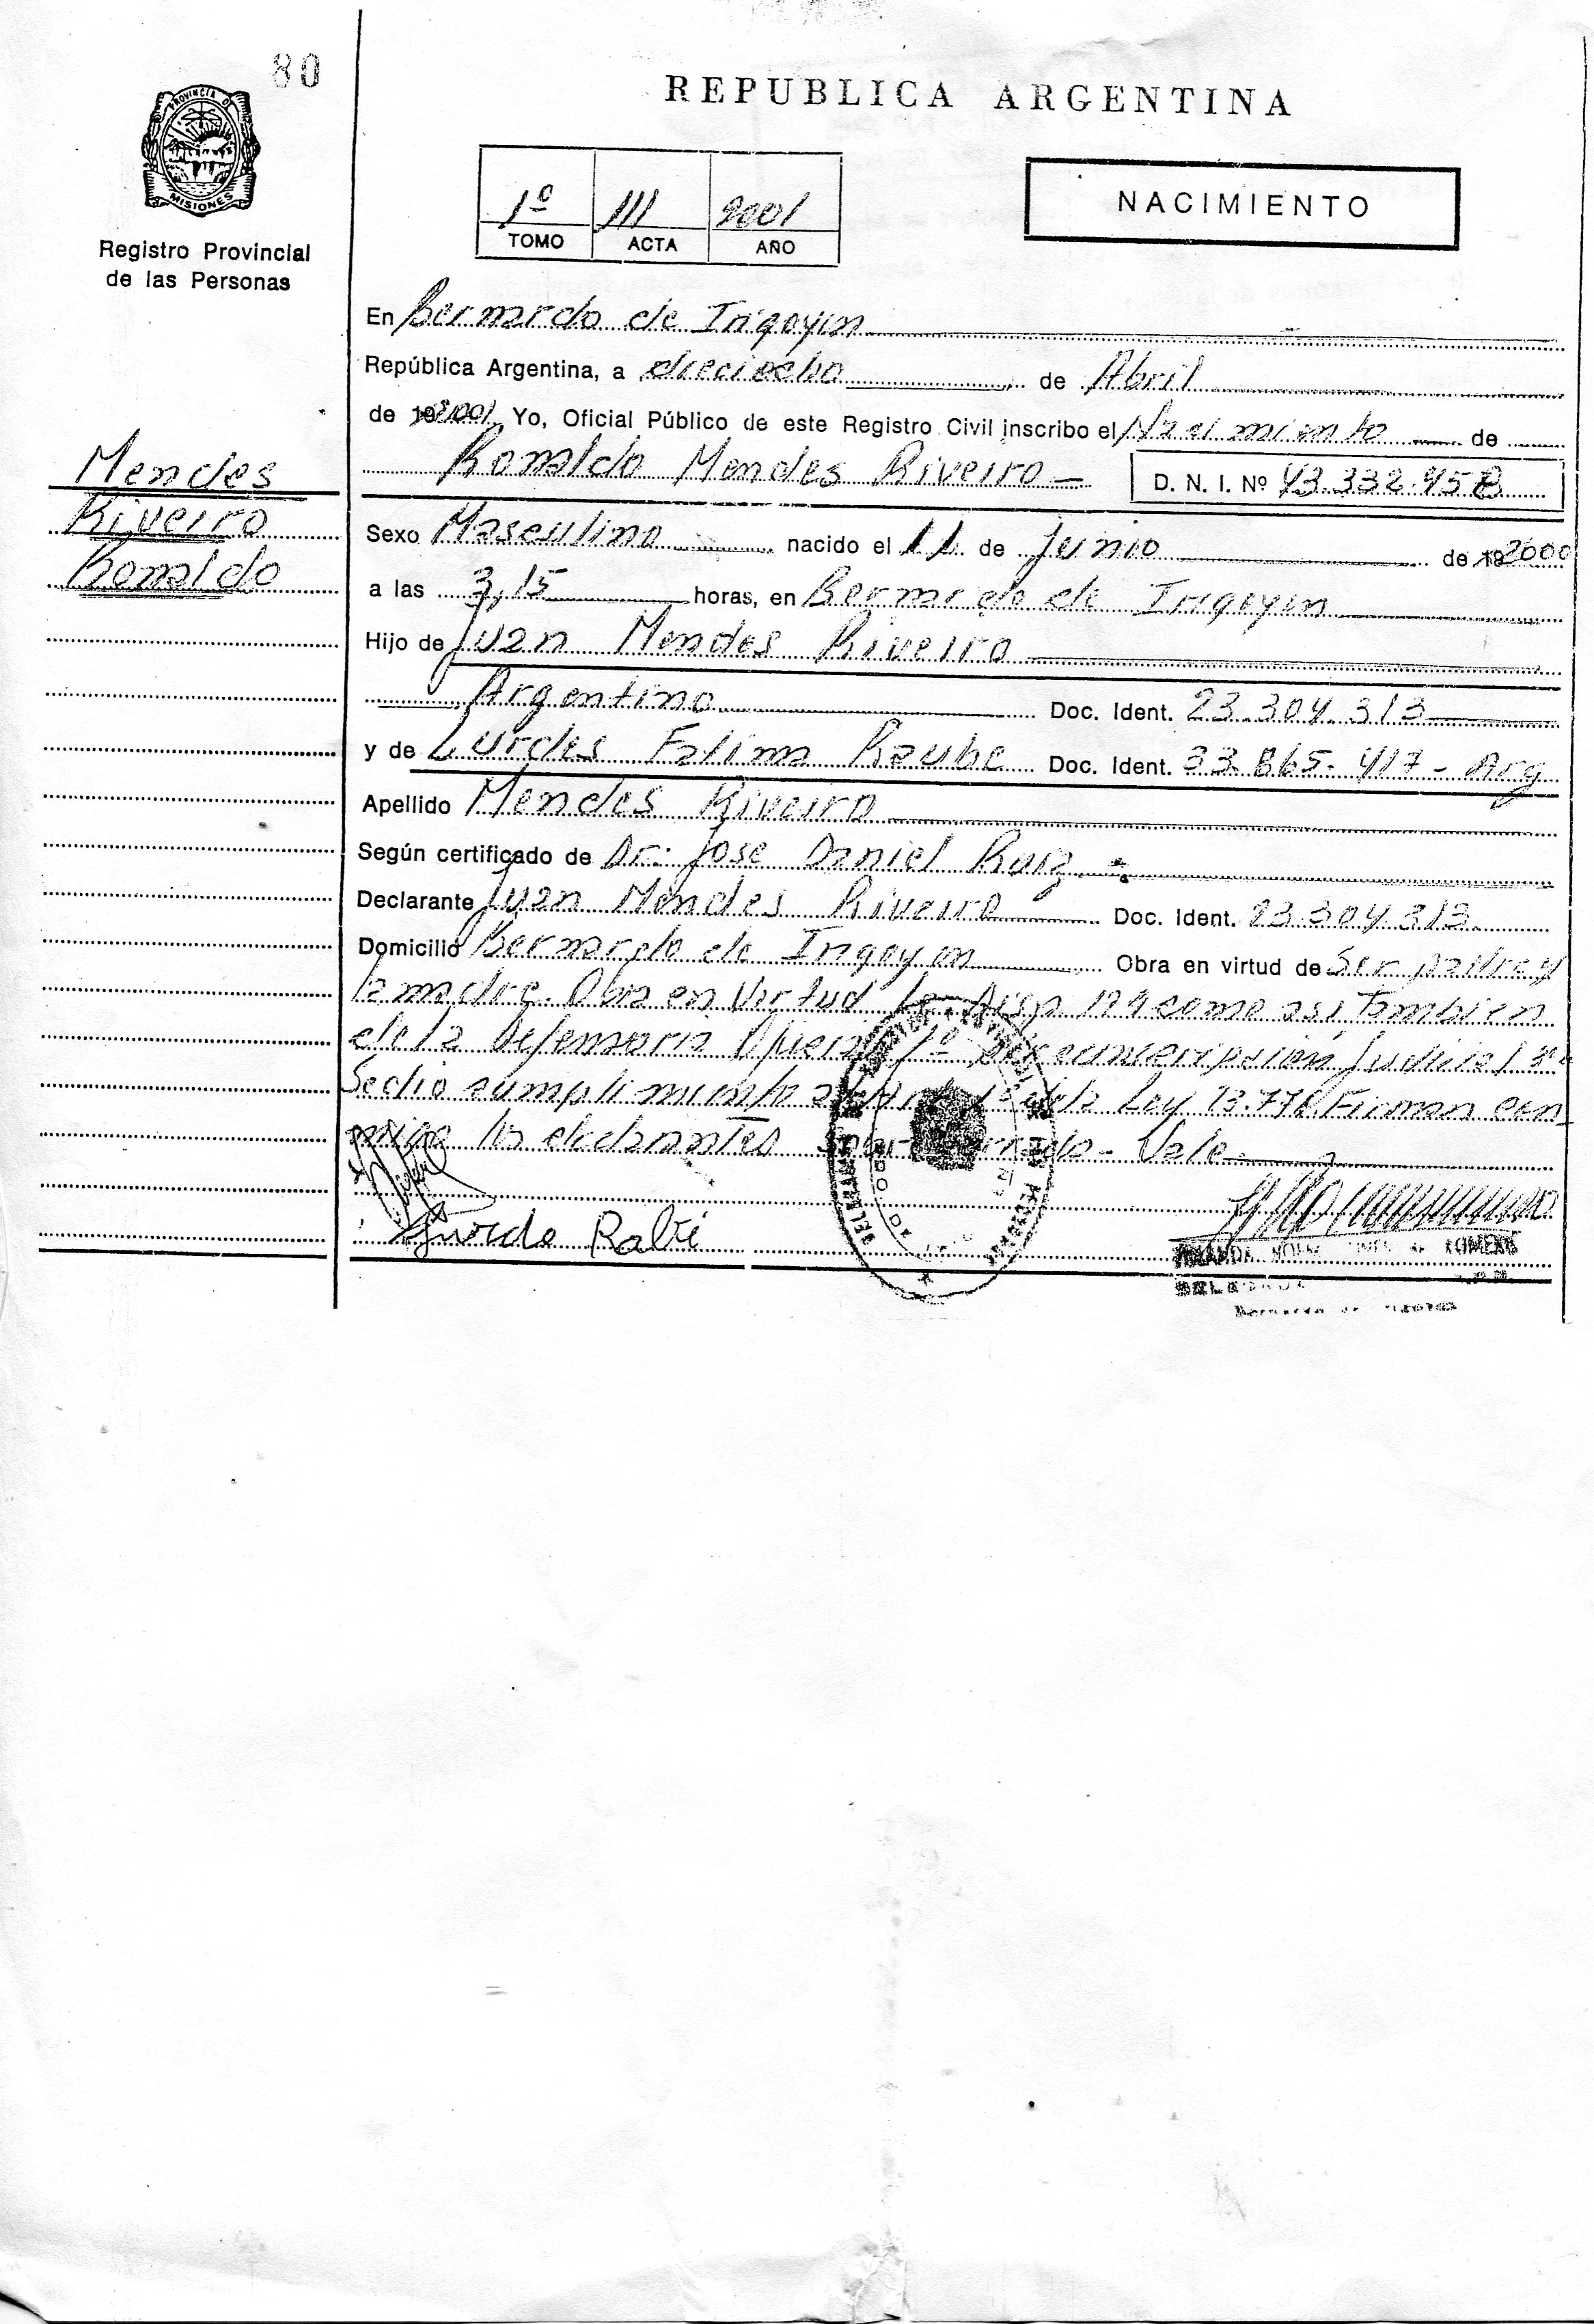 80
REPUBLICA ARGENTINA
PROVINCIA DE
MISIONES
Registro Provincial
de las Personas
1º 111 2001
TOMO ACTA AÑO
NACIMIENTO
En Bernardo de Irigoyen
República Argentina, a dieciocho de Abril
de 19 2001 Yo, Oficial Público de este Registro Civil inscribo el Nacimiento de
Ronaldo Mendes Riveiro - D. N. I. Nº 43.332.458
Mendes
Riveiro
Ronaldo
Sexo Masculino nacido el 11 de Junio de 19 2000
a las 3,15 horas, en Bernardo de Irigoyen
Hijo de Juan Mendes Riveiro
Argentino Doc. Ident. 23.304.313
y de Lurdes Fatima Raube Doc. Ident. 33.865.417 - Arg
Apellido Mendes Riveiro
Según certificado de Dr. Jose Daniel Ruiz
Declarante Juan Mendes Riveiro Doc. Ident. 23.304.313
Domicilio Bernardo de Irigoyen Obra en virtud de Ser padre y
la madre. Obra en Virtud Disp 174 como asi Tambien
de la Defensoria 1º Circunscripción Judicial 3º
Se dio cumplimiento Ley Firman con
migo los declarantes Vale
Lurde
DE ROMERO